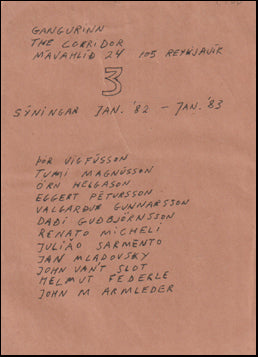 GANGURINN
THE CORRIDOR
MÁVAHLÍÐ 24 105 REYKJAVÍK
3
SÝNINGAR JAN. '82 – JAN. '83
ÞÓR VIGFÚSSON
TUMI MAGNÚSSON
ÖRN HELGASON
EGGERT PÉTURSSON
VALGARÐUR GUNNARSSON
DAÐI GUÐBJÖRNSSON
RENATO MICHELI
JULIÃO SARMENTO
JAN MLADOVSKY
JOHN VAN'T SLOT
HELMUT FEDERLE
JOHN M ARMLEDER